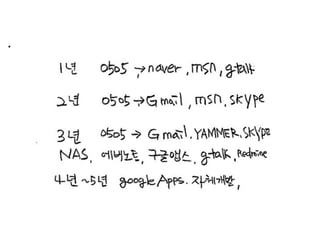 1년 0505 → naver, msn, gtalk
2년 0505 → Gmail, msn. SKYpe
3년 0505 → Gmail. YAMMER. SKYpe
NAS, 에버노트, 구글앱스, gtalk, Redmine
4년~5년 google Apps. 자체개발,